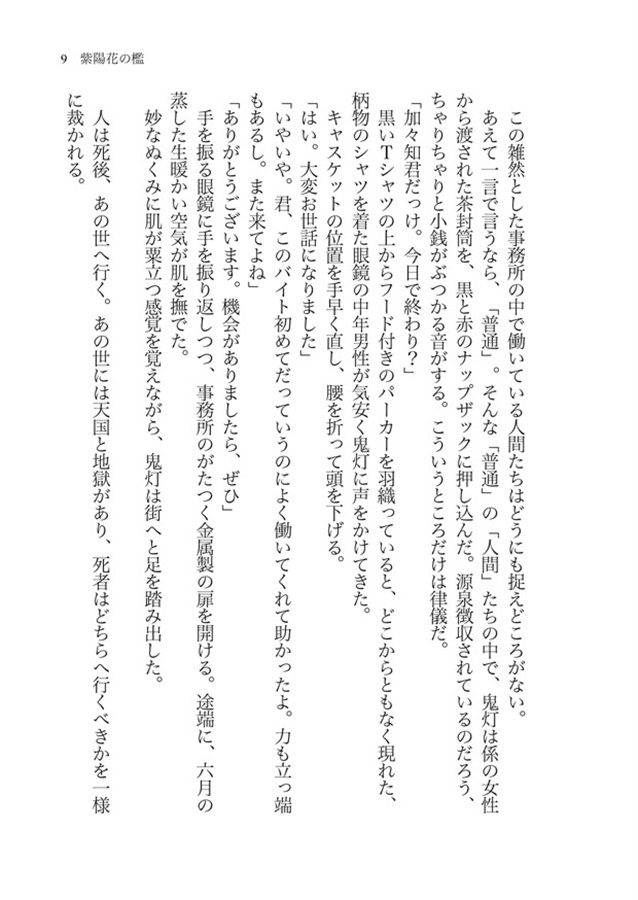 9 紫陽花の檻
この雑然とした事務所の中で働いている人間たちはどうにも捉えどころがない。
あえて一言で言うなら、「普通」。そんな「普通」の「人間」たちの中で、鬼灯は係の女性
から渡された茶封筒を、黒と赤のナップザックに押し込んだ。源泉徴収されているのだろう、
ちゃりちゃりと小銭がぶつかる音がする。こういうところだけは律儀だ。
「加々知君だっけ。今日で終わり？」
黒いTシャツの上からフード付きのパーカーを羽織っていると、どこからともなく現れた、
柄物のシャツを着た眼鏡の中年男性が気安く鬼灯に声をかけてきた。
キャスケットの位置を手早く直し、腰を折って頭を下げる。
「はい。大変お世話になりました」
「いやいや。君、このバイト初めてだっていうのによく働いてくれて助かったよ。力も立っ端
もあるし。また来てよね」
「ありがとうございます。機会がありましたら、ぜひ」
手を振る眼鏡に手を振り返しつつ、事務所のがたつく金属製の扉を開ける。途端に、六月の
蒸した生暖かい空気が肌を撫でた。
妙なぬくみに肌が粟立つ感覚を覚えながら、鬼灯は街へと足を踏み出した。
人は死後、あの世へ行く。あの世には天国と地獄があり、死者はどちらへ行くべきかを一様
に裁かれる。